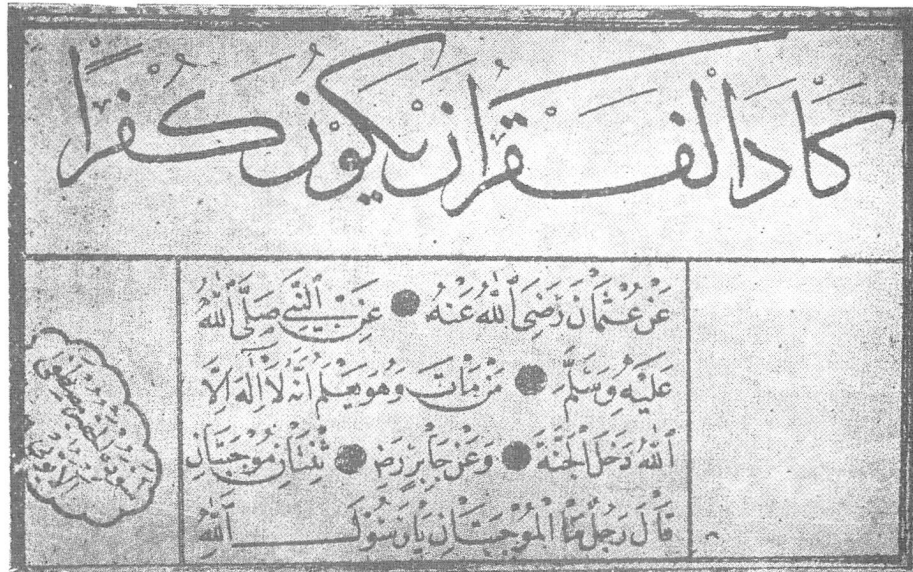 كَادَ الْفَقْرُ أَنْ يَكُونَ كُفْرًا
عَنْ عُثْمَانَ رَضِيَ اللّٰهُ عَنْهُ ● عَنِ النَّبِيِّ صَلَّى اللّٰهُ
عَلَيْهِ وَسَلَّمَ ● مَنْ مَاتَ وَهُوَ يَعْلَمُ اَنَّهُ لَا اِلٰهَ اِلَّا
اللّٰهُ دَخَلَ الْجَنَّةَ ● وَعَنْ جَابِرٍ رَضِ ● ثِنْتَانِ مُوجِبَتَانِ
قَالَ رَجُلٌ مَا الْمُوجِبَتَانِ يَا رَسُولَ اللّٰهِ